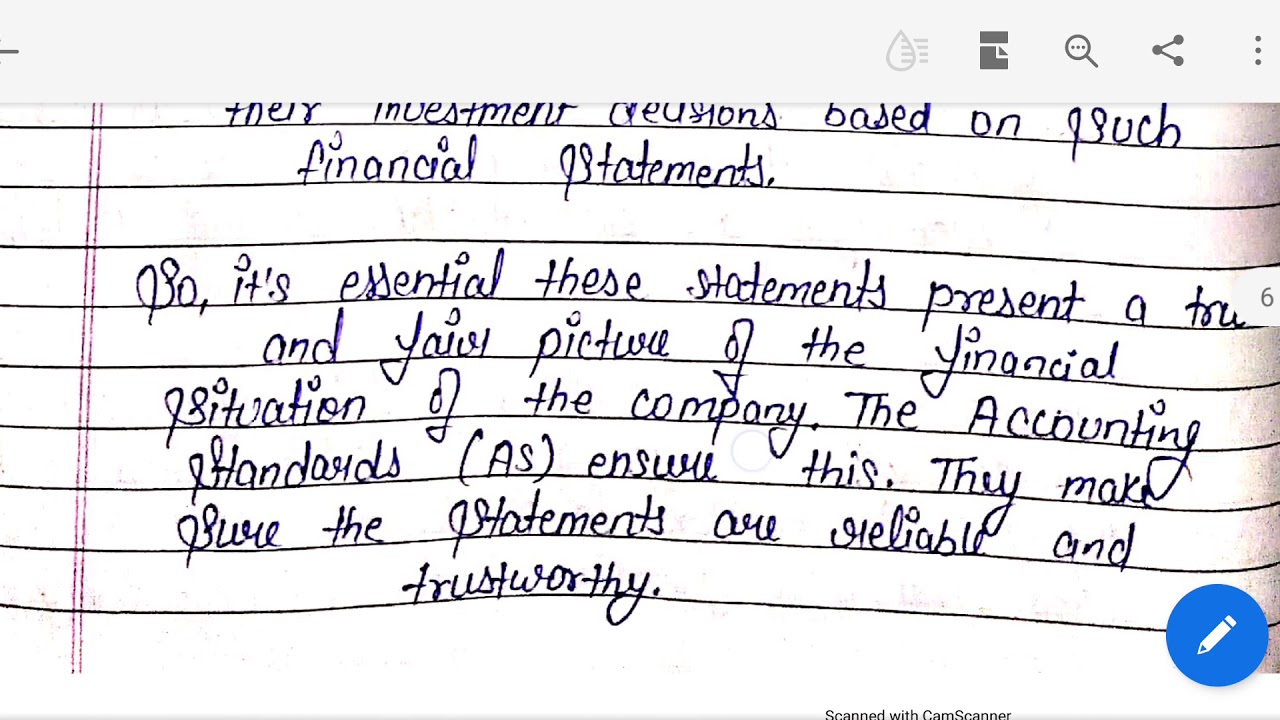 their investment decisions based on such
financial statements.
So, it's essential these statements present a tru
6
and fair picture of the financial
situation of the company. The Accounting
Standards (AS) ensure this. They make
sure the statements are reliable and
trustworthy.
Scanned with CamScanner